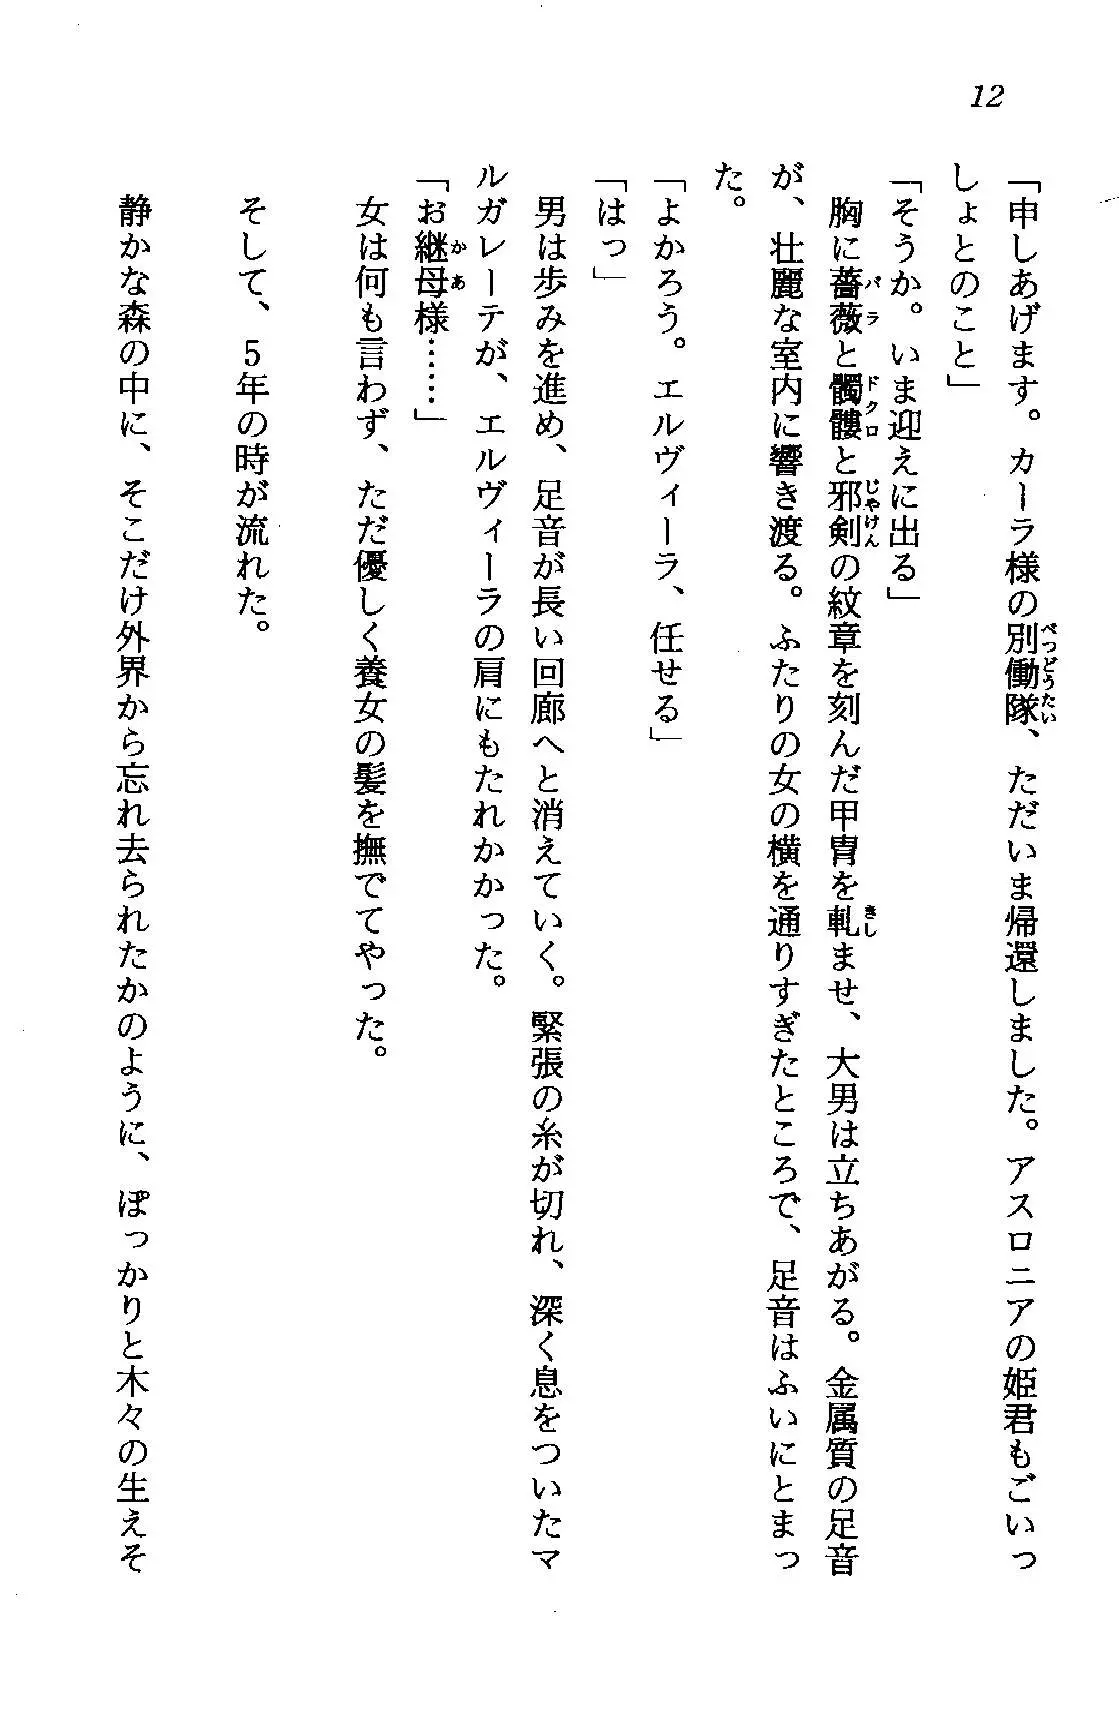 12
「申しあげます。カーラ様の別働隊、ただいま帰還しました。アスロニアの姫君もごいっ
しょとのこと」
「そうか。いま迎えに出る」
胸に薔薇と髑髏と邪剣の紋章を刻んだ甲冑を軋ませ、大男は立ちあがる。金属質の足音
が、壮麗な室内に響き渡る。ふたりの女の横を通りすぎたところで、足音はふいにとまっ
た。
「よかろう。エルヴィーラ、任せる」
「はっ」
男は歩みを進め、足音が長い回廊へと消えていく。緊張の糸が切れ、深く息をついたマ
ルガレーテが、エルヴィーラの肩にもたれかかった。
「お継母様……」
女は何も言わず、ただ優しく養女の髪を撫でてやった。
そして、5年の時が流れた。
静かな森の中に、そこだけ外界から忘れ去られたかのように、ぽっかりと木々の生えそ